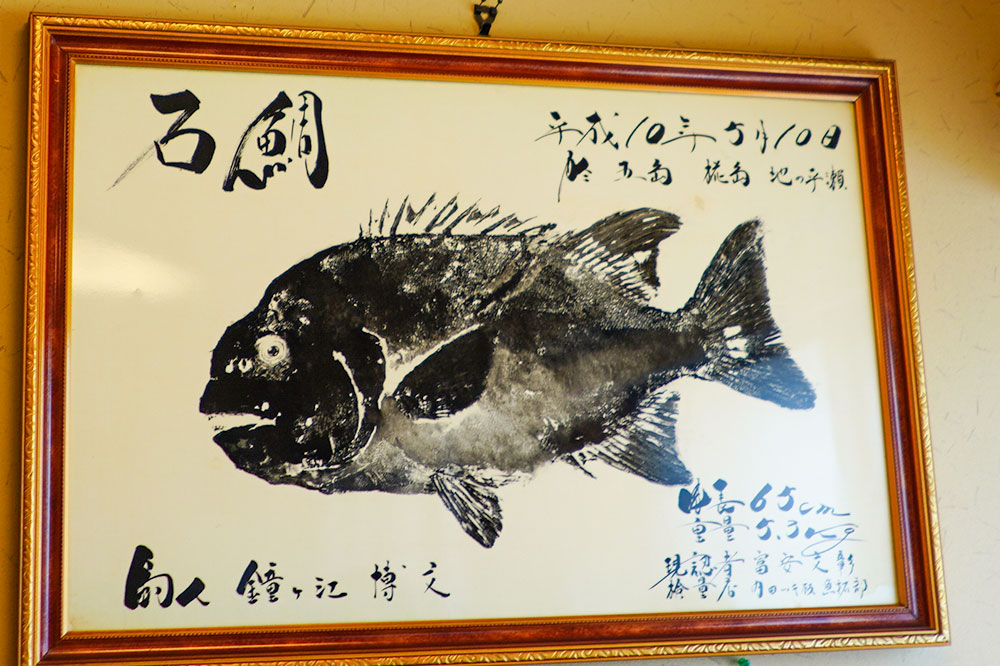 石鯛
平成10年5月10日
於 五島 椛島 池の平瀬
身長 65cm
重量 5.3kg
現認者 富安
検量店 魚拓部
釣人 鐘ヶ江 博文